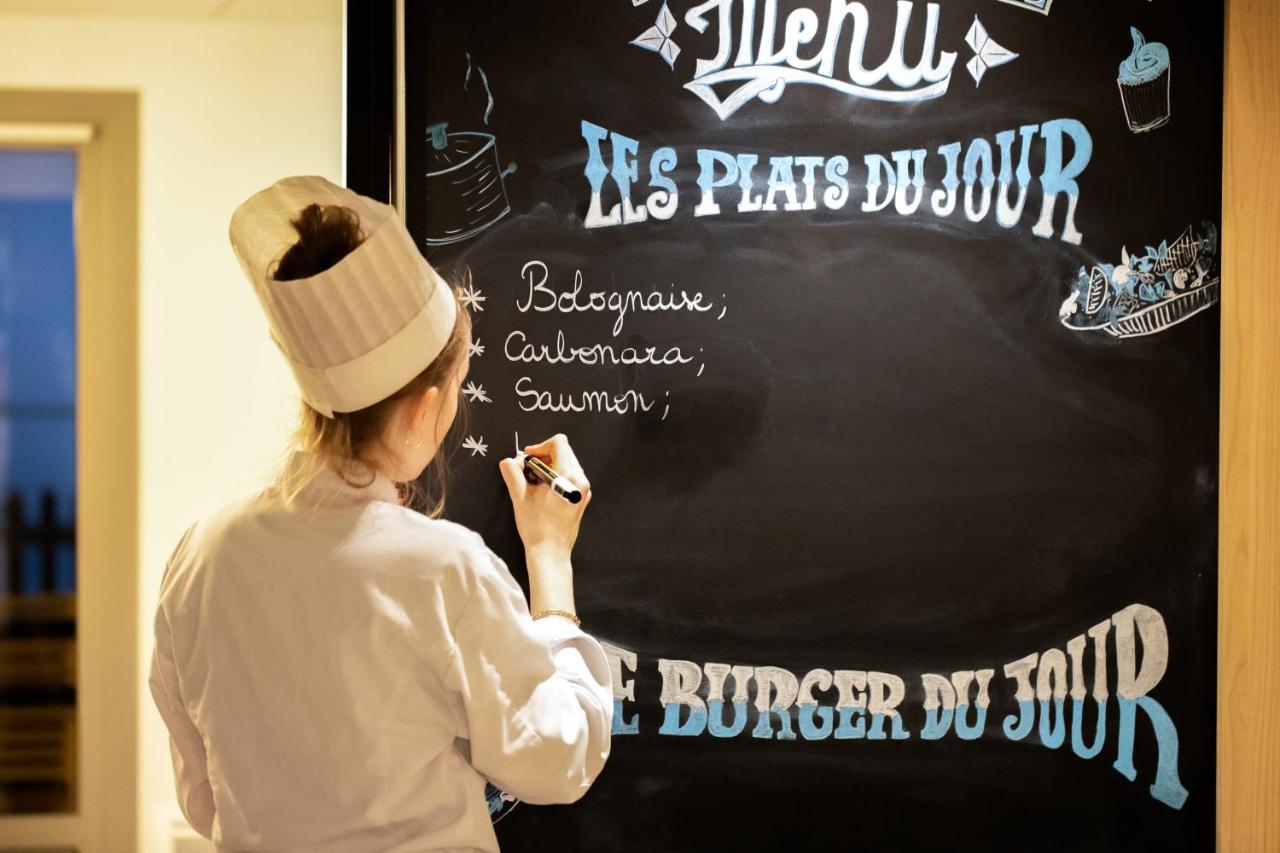 Menu
LES PLATS DU JOUR
* Bolognaise ;
* Carbonara ;
* Saumon ;
*
E BURGER DU JOUR